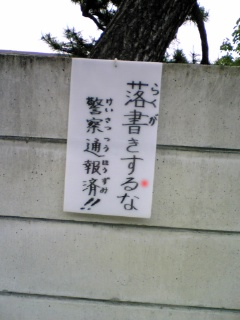 落書きするな
らくが
警察通報済!!
けいさつつうほうずみ